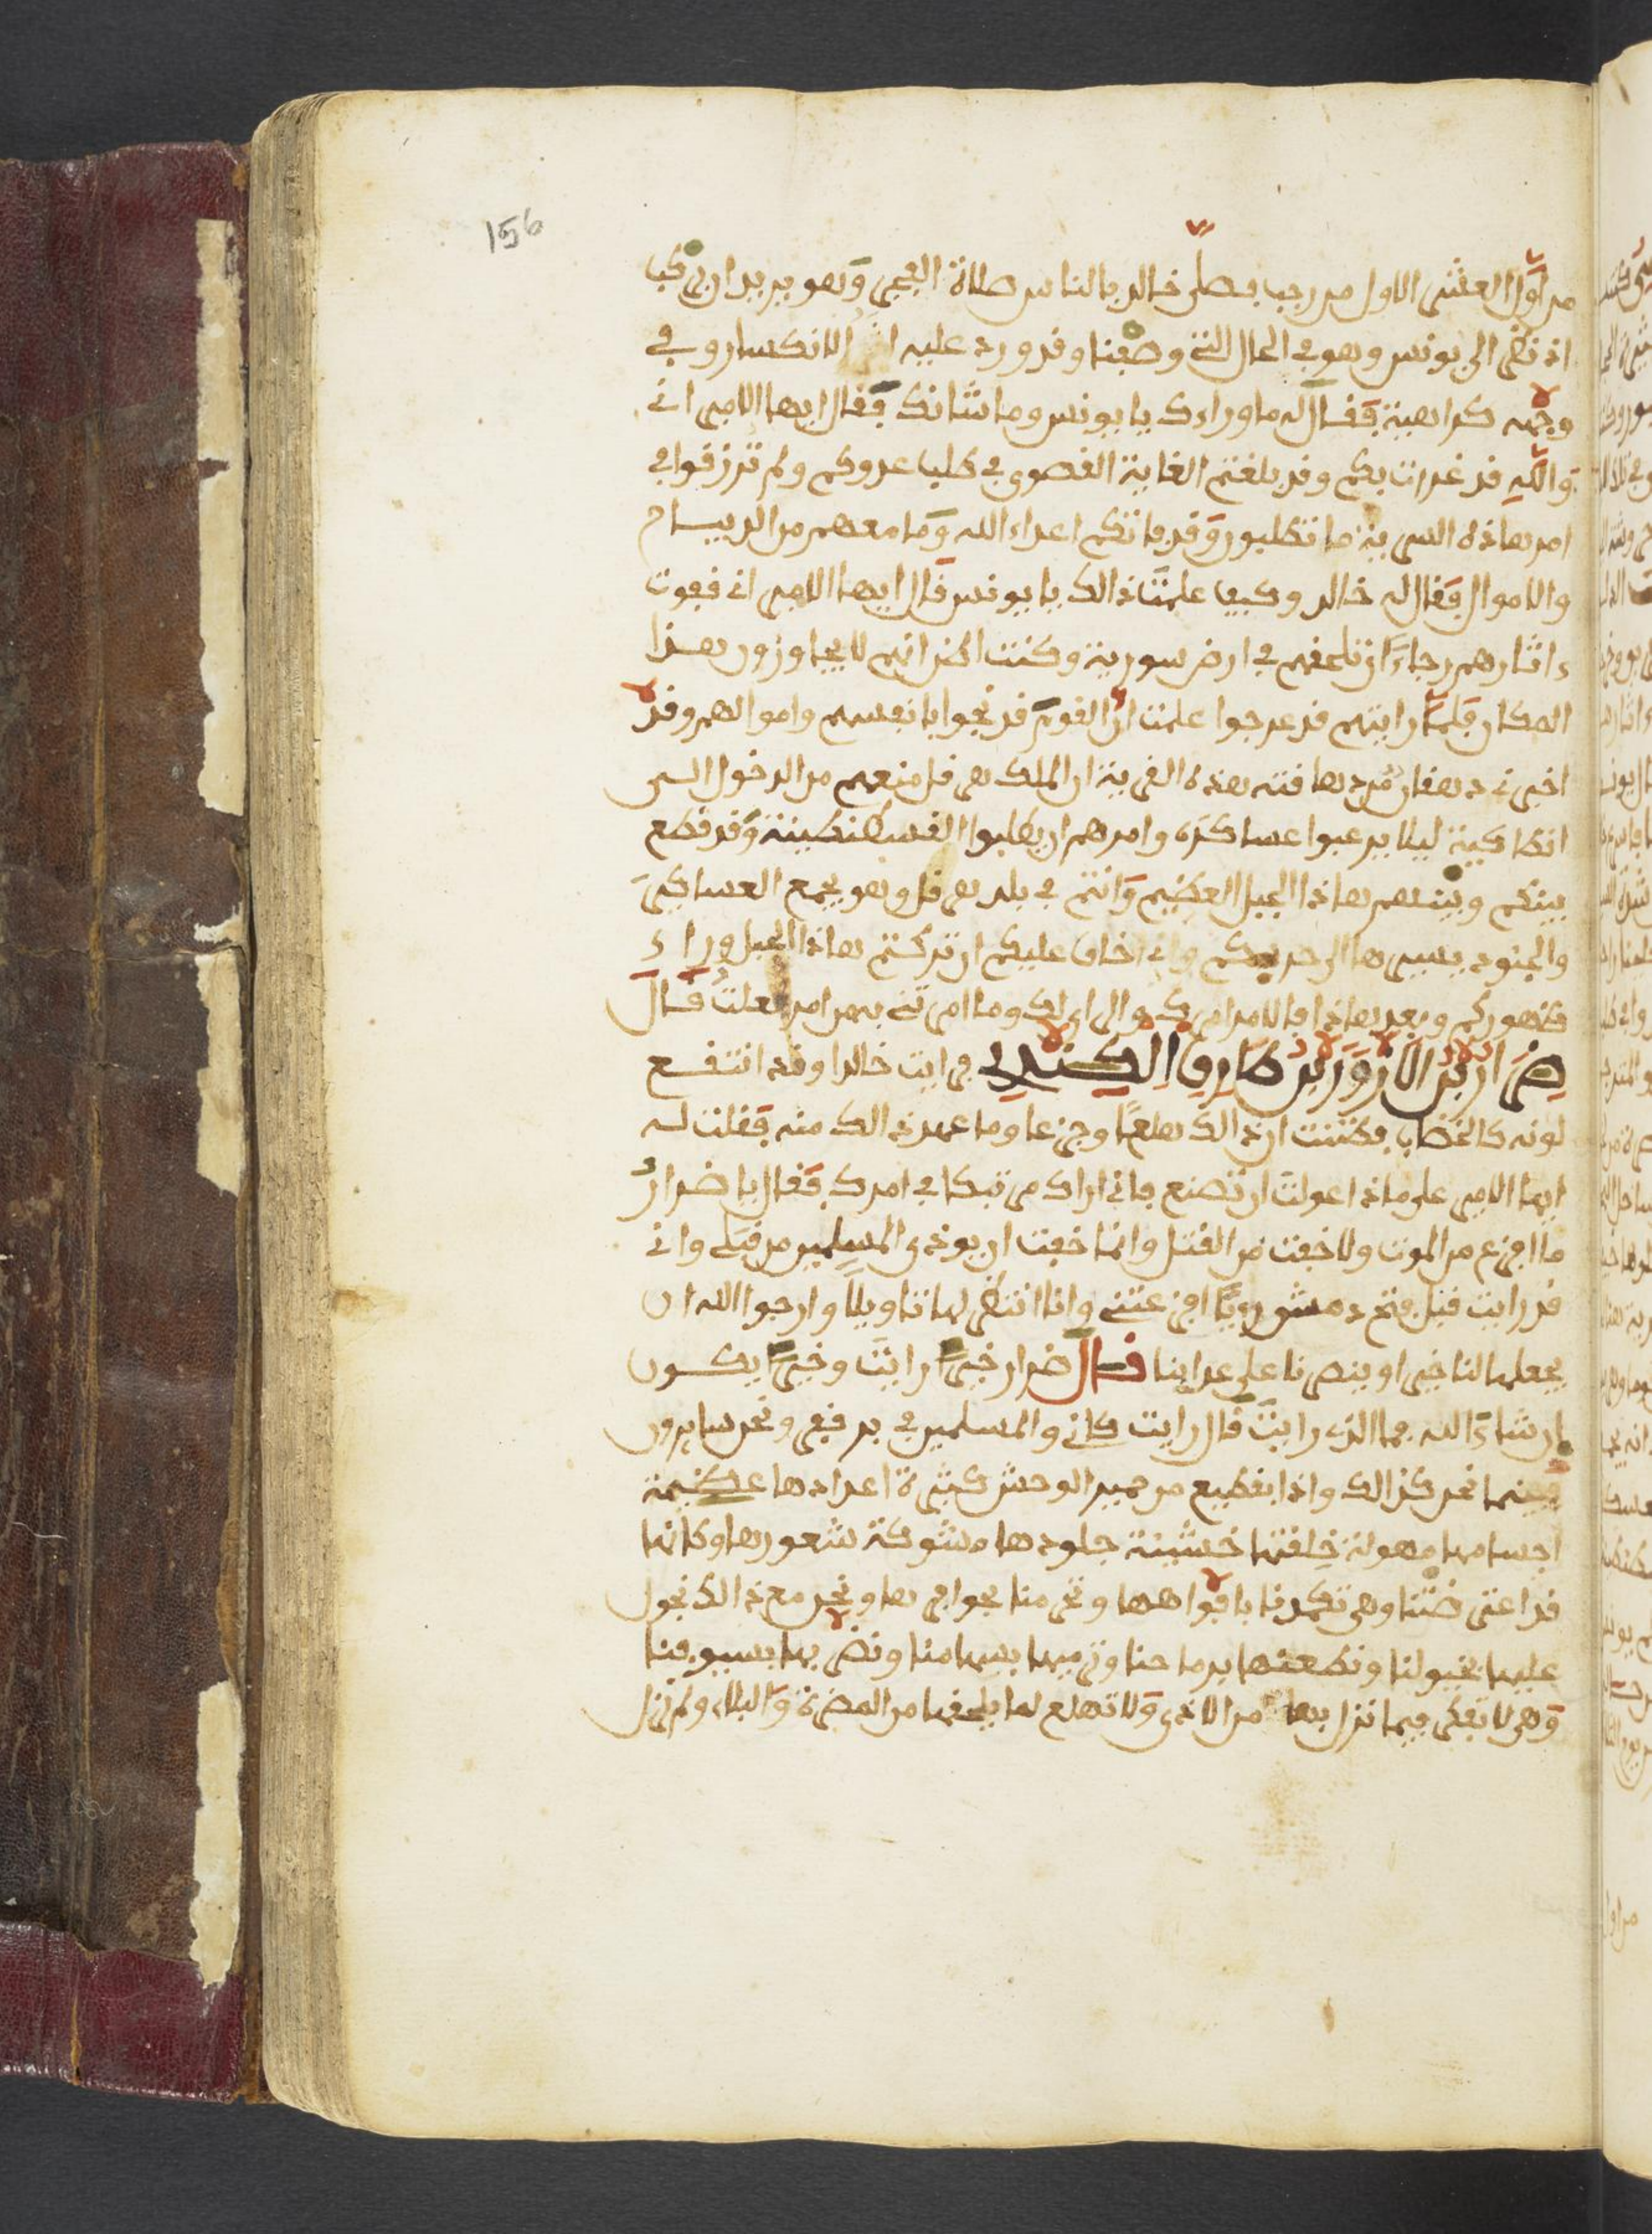 156
من اول العشر الاول من رجب فصلى خالد بالناس صلاة الفجر وهو يريد ان يركب
اذ نظر الى يونس وهو في الحال التي وصفنا وقد ورد عليه الانكسار وفي
وجهه كراهية فقال له ما وراءك يا يونس وما شانك فقال ايها الامير اني
والله قد غدرت بكم وقد بلغتم الغاية القصوى في طلب عدوكم ولم ترزقوا في
امر هاذه السرية ما تطلبون وقد فاتكم اعداء الله وما معهم من الديباج
والاموال فقال له خالد وكيف علمت ذالك يا يونس قال ايها الامير اني قفوت
ءاثارهم رجاء ان تلحقهم في ارض سورية وكنت اظن انهم لا يجاوزون هذا
المكان فلما رايتهم قد عرجوا علمت ان القوم قد نجوا بانفسهم واموالهم وقد
اخبرني دهقان من دهاقنه هذه القرية ان الملك هرقل منعهم من الدخول الى
انطاكية ليلا يرعبوا عساكره وامرهم ان يطلبوا القسطنطينة وقد قطع
بينكم وبينهم هاذا الجبل العظيم وانتم في بلد هرقل وهو يجمع العساكر
والجنود يسير بها الى حربكم واني اخاف عليكم ان تركتم هاذا الجبل وراء
ظهوركم وبعد هاذا فالامر امرك والراي لك وما امرتني به من امر فعلت قال
ضرار بن الازور بن طارق الكندي فرايت خالدا وقد انتقع
لونه كالخضاب فظننت ان ذالك هلعا وجزعا وما عهد ذالك منه فقلت له
ايها الامير على ماذا عولت ان تصنع فاني اراك مرتبكا في امرك فقال يا ضرار
ما اجزع من الموت ولا خفت من القتل وانما خفت ان يوذى المسلمين من قبلي واني
قد رايت قبل فتح دمشق رويا افزعتني وانا انتظر لها تاويلا وارجوا الله ان
يجعلها لنا خير او ينصرنا على عداينا قال ضرار خيرا رايت وخيرا يكون
ان شاء الله فما الذي رايت قال رايت كاني والمسلمين في بر قفر ونحن سايرون
فبينما نحن كذالك واذا بقطيع من حمير الوحش كثيرة اعدادها عظيمة
اجسامها مهولة خلقتها خشينة جلودها مشوكة شعورها وكانها
قد اعترضتنا وهي تكدمنا بافواهها وترمنا بحوافرها ونحن مع ذالك نجول
عليها بخيولنا ونطعنها برماحنا ونرميها بسهامنا ونضربها بسيوفنا
وهي لا تفكر فيما نزل بها من الاذى ولا تهلع لما يلحقها من المضرة والبلاء ولم نزل